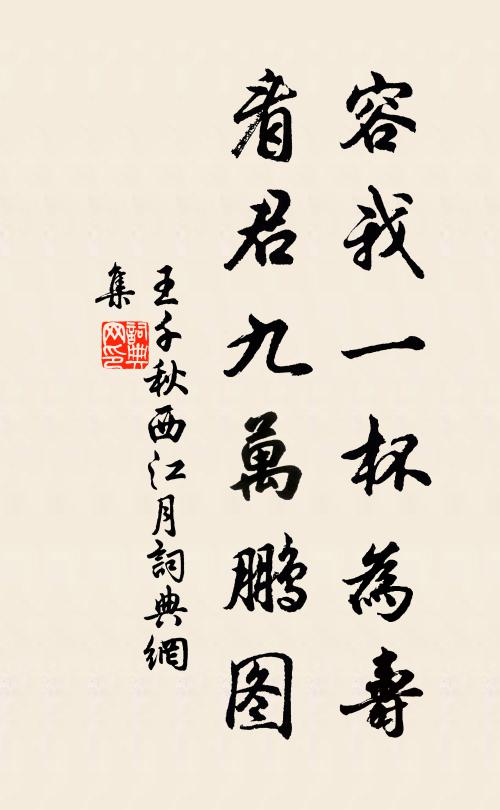 容我一杯為壽
看君九萬鹏图
王千秋西江月詞典網
集
詞典网印